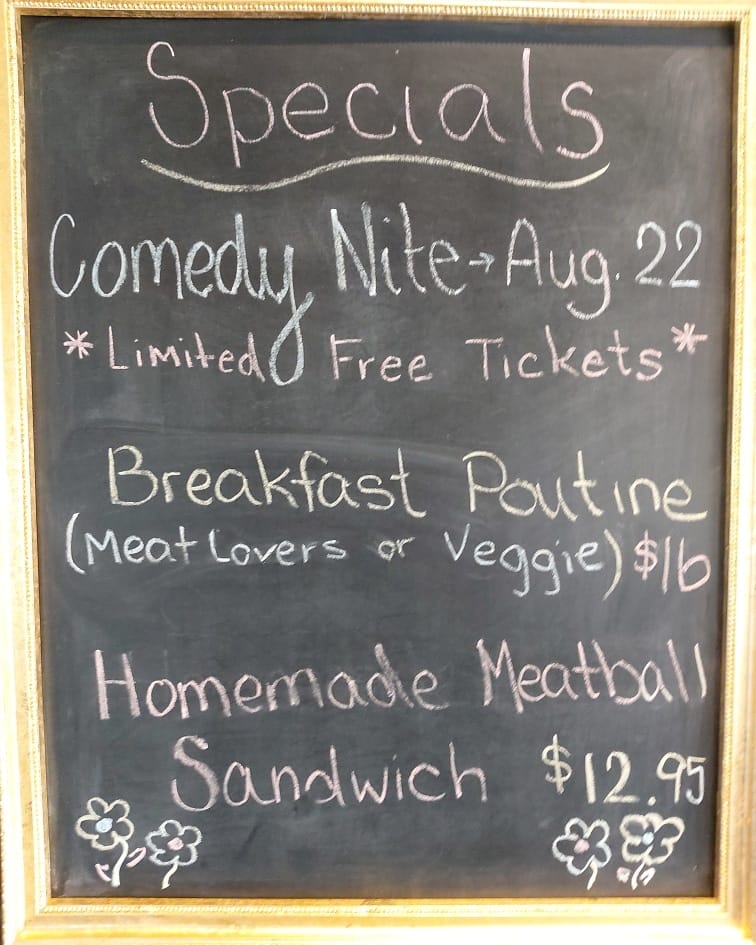 Specials
Comedy Nite → Aug. 22
* Limited Free Tickets *
Breakfast Poutine
(Meat Lovers or Veggie) $16
Homemade Meatball
Sandwich $12.95